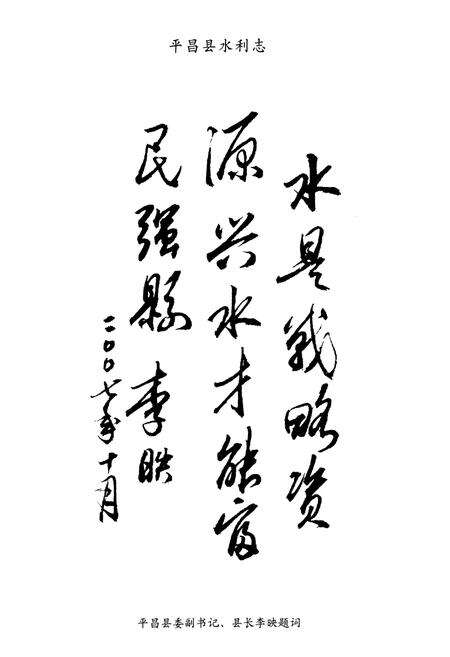 平昌县水利志
水是战略资
源兴水才能富
民强縣 李映
二〇〇七年十月
平昌县委副书记、县长李映题词